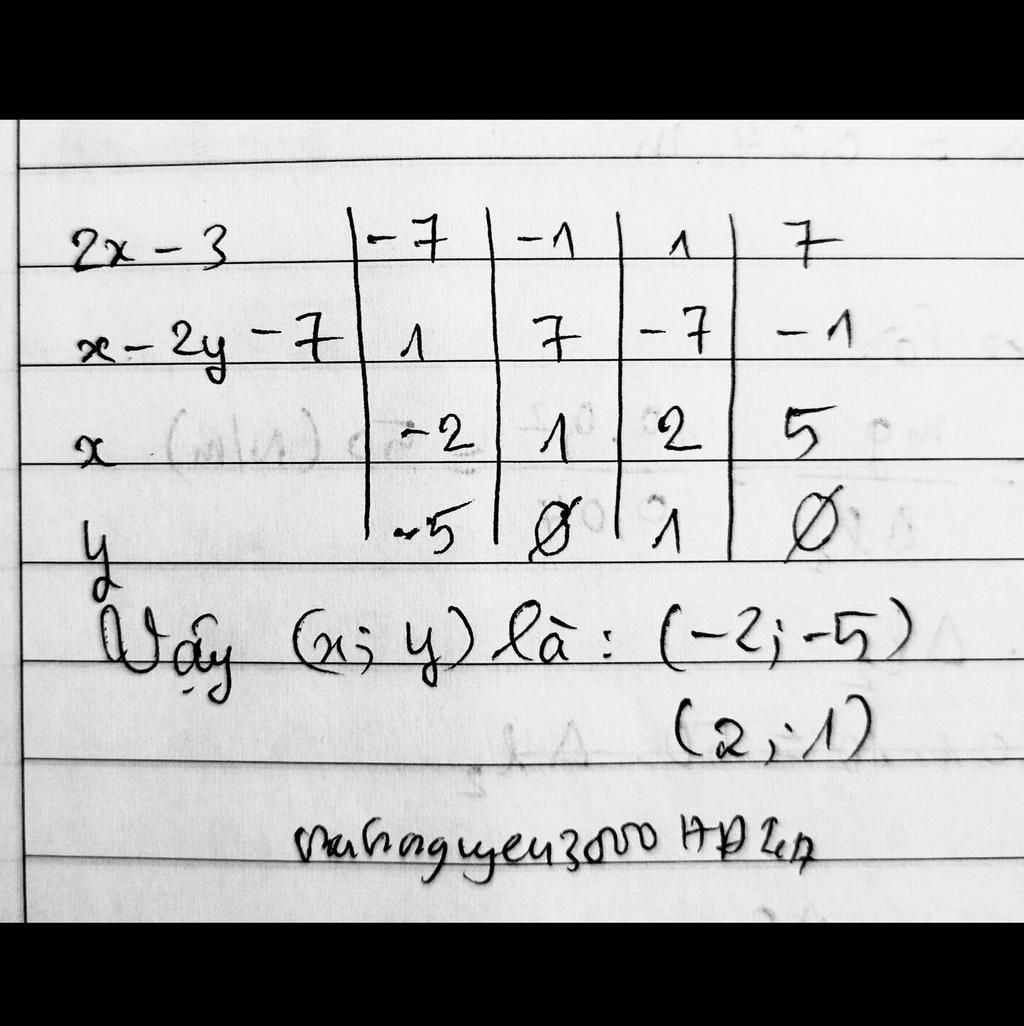 2x - 3 | -7 | -1 | 1 | 7
x - 2y - 7 | 1 | 7 | -7 | -1
x | -2 | 1 | 2 | 5
y | -5 | Ø | 1 | Ø
Vậy (x; y) là: (-2; -5)
(2; 1)